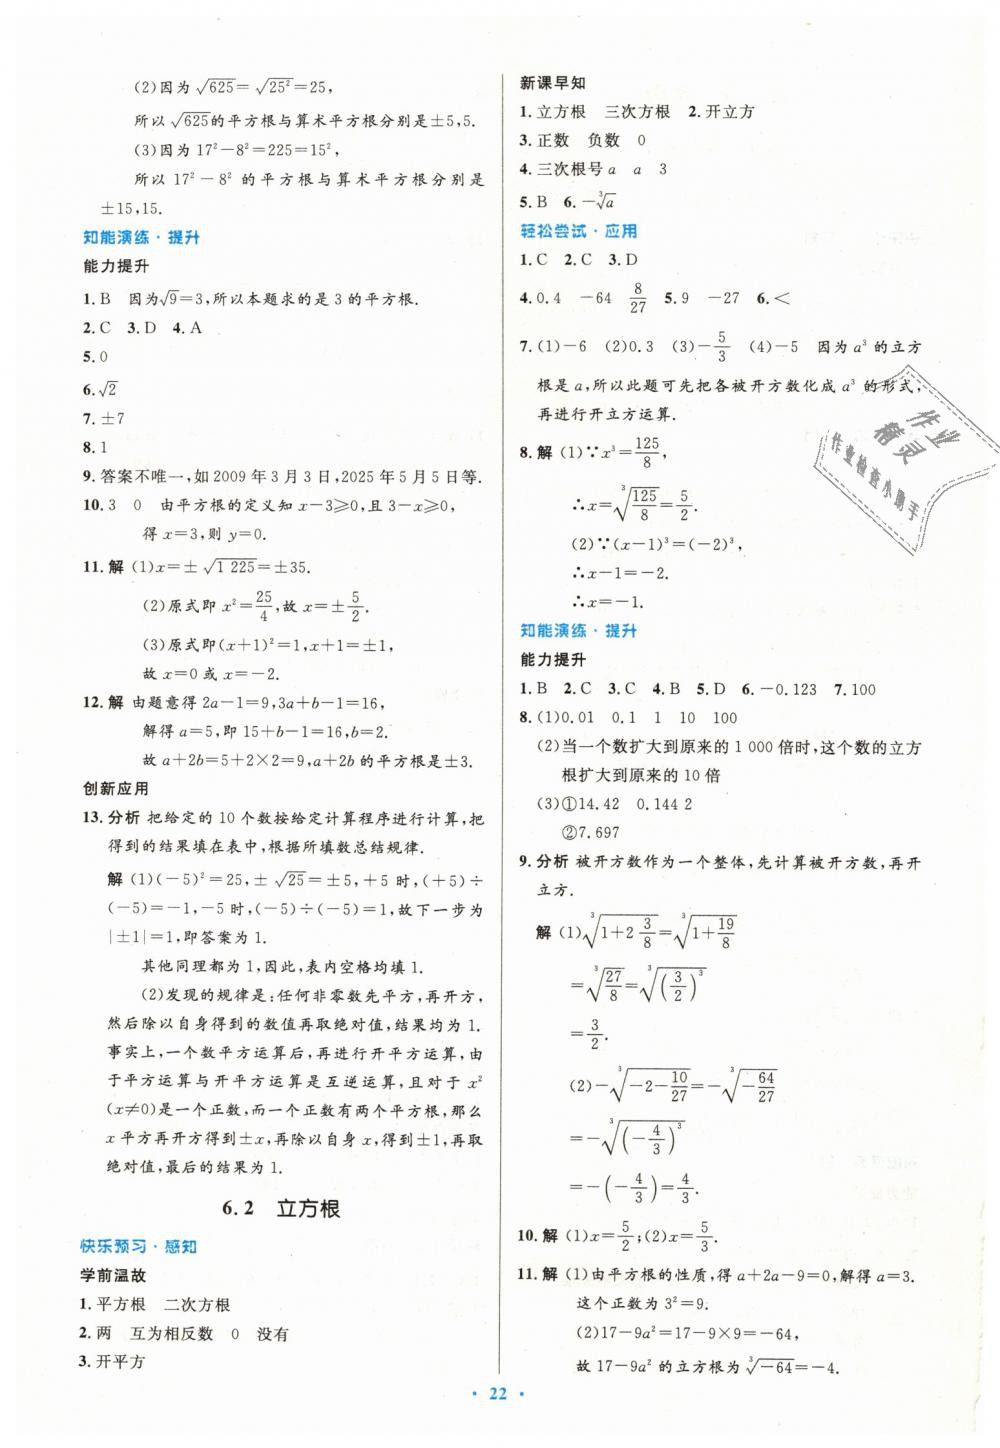 (2)因为√625=√25²=25,
所以√625的平方根与算术平方根分别是±5,5.
(3)因为17²-8²=225=15²,
所以17²-8²的平方根与算术平方根分别是
±15,15.
知能演练·提升
能力提升
1.B 因为√9=3,所以本题求的是3的平方根.
2.C 3.D 4.A
5.0
6.√2
7.±7
8.1
9.答案不唯一,如2009年3月3日,2025年5月5日等.
10.3 0 由平方根的定义知x-3≥0,且3-x≥0,
得x=3,则y=0.
11.解 (1)x=±√1 225=±35.
(2)原式即x²=25/4,故x=±5/2.
(3)原式即(x+1)²=1,x+1=±1,
故x=0或x=-2.
12.解 由题意得2a-1=9,3a+b-1=16,
解得a=5,即15+b-1=16,b=2.
故a+2b=5+2×2=9,a+2b的平方根是±3.
创新应用
13.分析 把给定的10个数按给定计算程序进行计算,把
得到的结果填在表中,根据所填数总结规律.
解 (1)(-5)²=25,±√25=±5,+5时,(+5)÷
(-5)=-1,-5时,(-5)÷(-5)=1,故下一步为
|±1|=1,即答案为1.
其他同理都为1,因此,表内空格均填1.
(2)发现的规律是:任何非零数先平方,再开方,
然后除以自身得到的数值再取绝对值,结果均为1.
事实上,一个数平方运算后,再进行开平方运算,由
于平方运算与开平方运算是互逆运算,且对于x²
(x≠0)是一个正数,而一个正数有两个平方根,那么
x平方再开方得到±x,再除以自身x,得到±1,再取
绝对值,最后的结果为1.
6.2 立方根
快乐预习·感知
学前温故
1.平方根 二次方根
2.两 互为相反数 0 没有
3.开平方
新课早知
1.立方根 三次方根 2.开立方
3.正数 负数 0
4.三次根号a a 3
5.B 6.-∛a
轻松尝试·应用
1.C 2.C 3.D
4.0.4 -64 8/27 5.9 -27 6.<
7.(1)-6 (2)0.3 (3)-5/3 (4)-5 因为a³的立方
根是a,所以此题可先把各被开方数化成a³的形式,
再进行开立方运算.
8.解 (1)∵x³=125/8,
∴x=∛(125/8)=5/2.
(2)∵(x-1)³=(-2)³,
∴x-1=-2.
∴x=-1.
知能演练·提升
能力提升
1.B 2.C 3.C 4.B 5.D 6.-0.123 7.100
8.(1)0.01 0.1 1 10 100
(2)当一个数扩大到原来的1 000倍时,这个数的立方
根扩大到原来的10倍
(3)①14.42 0.144 2
②7.697
9.分析 被开方数作为一个整体,先计算被开方数,再开
立方.
解 (1)∛(1+2 3/8)=∛(1+19/8)
=∛(27/8)=∛((3/2)³)
=3/2.
(2)-∛(-2-10/27)=-∛(-64/27)
=-∛((-4/3)³)
=-(-4/3)=4/3.
10.解 (1)x=5/2;(2)x=5/3.
11.解 (1)由平方根的性质,得a+2a-9=0,解得a=3.
这个正数为3²=9.
(2)17-9a²=17-9×9=-64,
故17-9a²的立方根为∛-64=-4.
作业
精灵
作业检查小助手
·22·